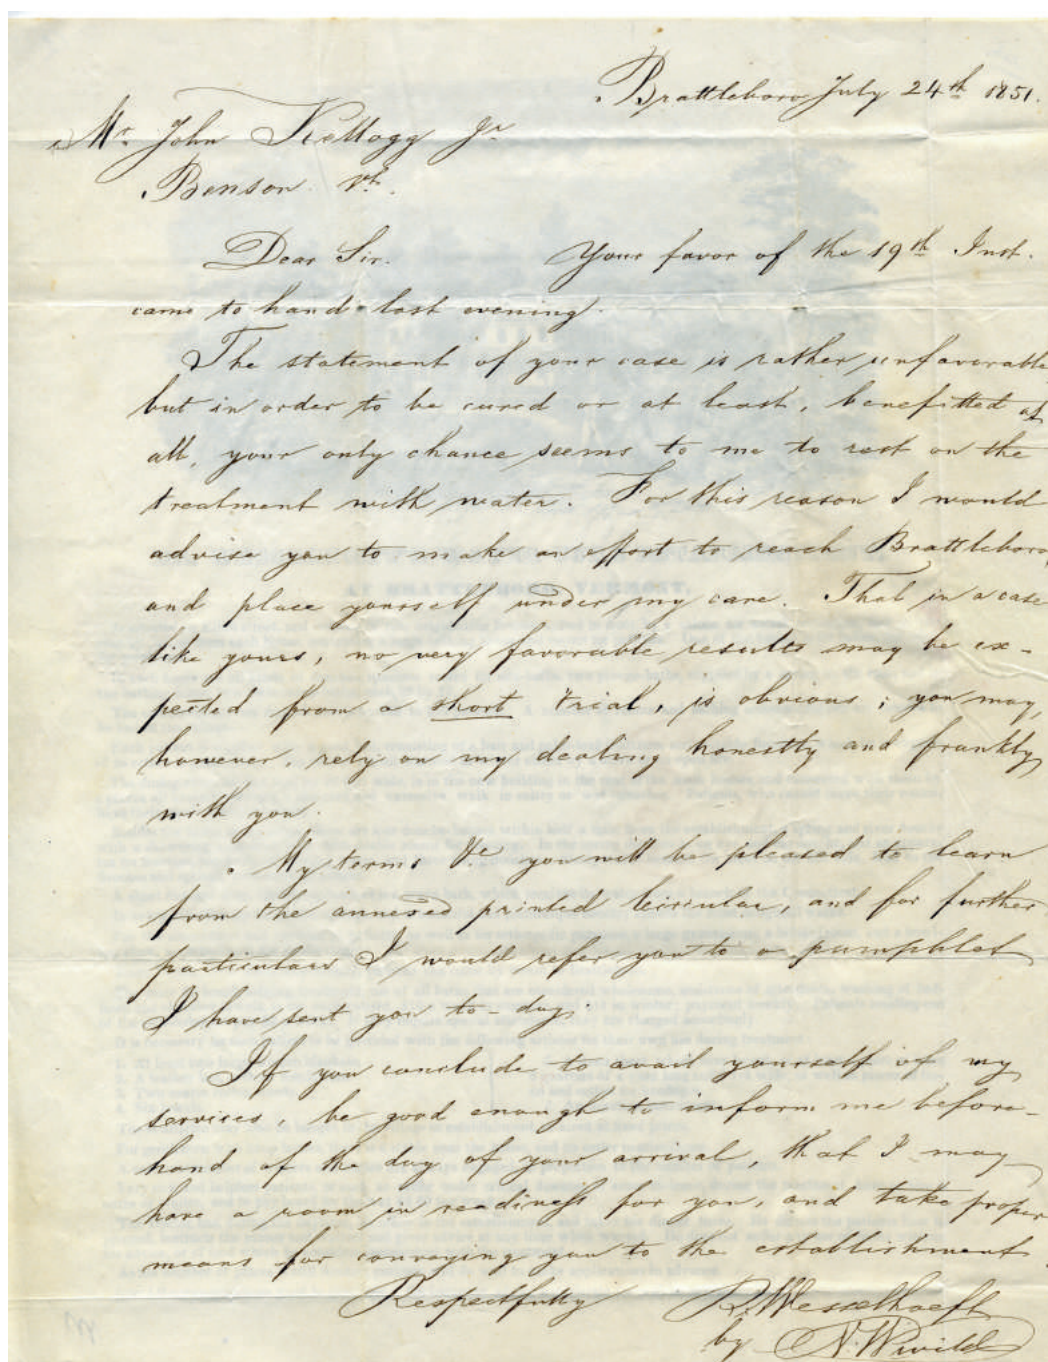 Brattleboro July 24th 1851.
Mr. John Kellogg Jr
Benson Vt.
Dear Sir. Your favor of the 19th Inst.
came to hand last evening.
The statement of your case is rather unfavorable
but in order to be cured or at least, benefitted at
all, your only chance seems to me to rest on the
treatment with water. For this reason I would
advise you to make an effort to reach Brattleboro
and place yourself under my care. That in a case
like yours, no very favorable results may be ex-
pected from a short trial, is obvious; you may,
however, rely on my dealing honestly and frankly
with you.
My terms &c you will be pleased to learn
from the annexed printed Circular, and for further
particulars I would refer you to a pamphlet
I have sent you to-day.
If you conclude to avail yourself of my
services, be good enough to inform me before-
hand of the day of your arrival, that I may
have a room in readiness for you, and take proper
means for conveying you to the establishment.
Respectfully R. Wesselhoeft
by